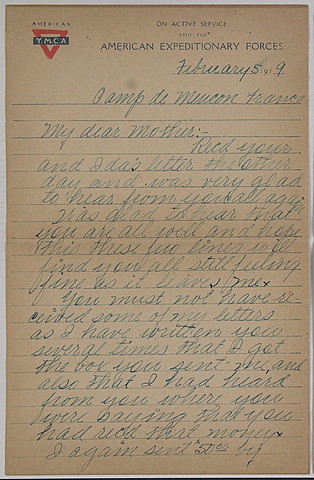 AMERICAN
Y.M.C.A.
ON ACTIVE SERVICE
WITH THE
AMERICAN EXPEDITIONARY FORCES
February 5 1919
Camp de Meucon France
My dear Mother:-
Recd your
and Idas letter the other
day and was very glad
to hear from you all again
Was glad to hear that
you are all well and hope
this these few lines will
find you all still feeling
fine as it leaves me x
You must not have re-
ceived some of my letters
as I have written you
several times that I got
the box you sent me, and
also that I had heard
from you where you
were saying that you
had recd that money x
I again sent $50.00 by